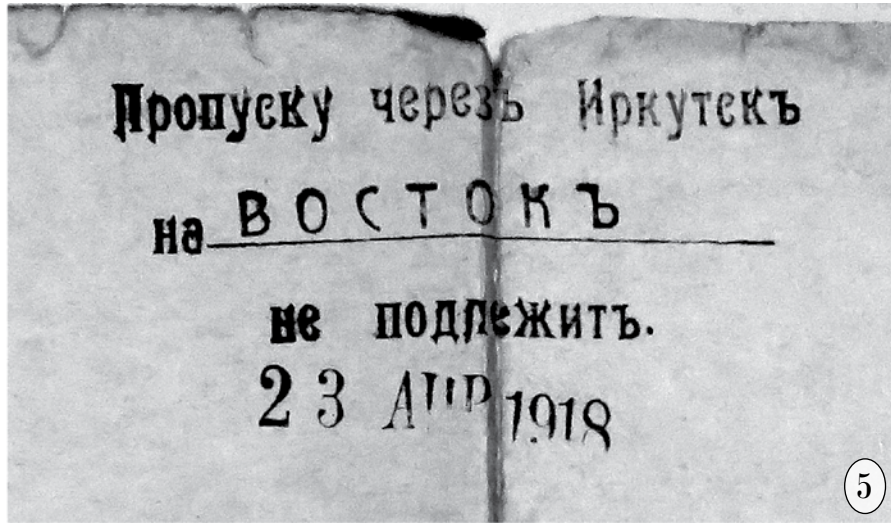 Пропуску через Иркутскъ
на ВОСТОКЪ
не подлежитъ.
23 АПР 1918
5